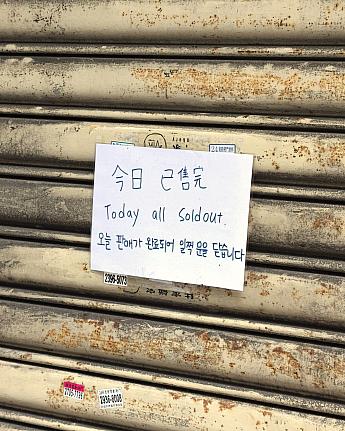 今日 已售完
Today all Soldout.
오늘 판매가 완료되어 일찍 문을 닫습니다
2396-9073
2936-8008